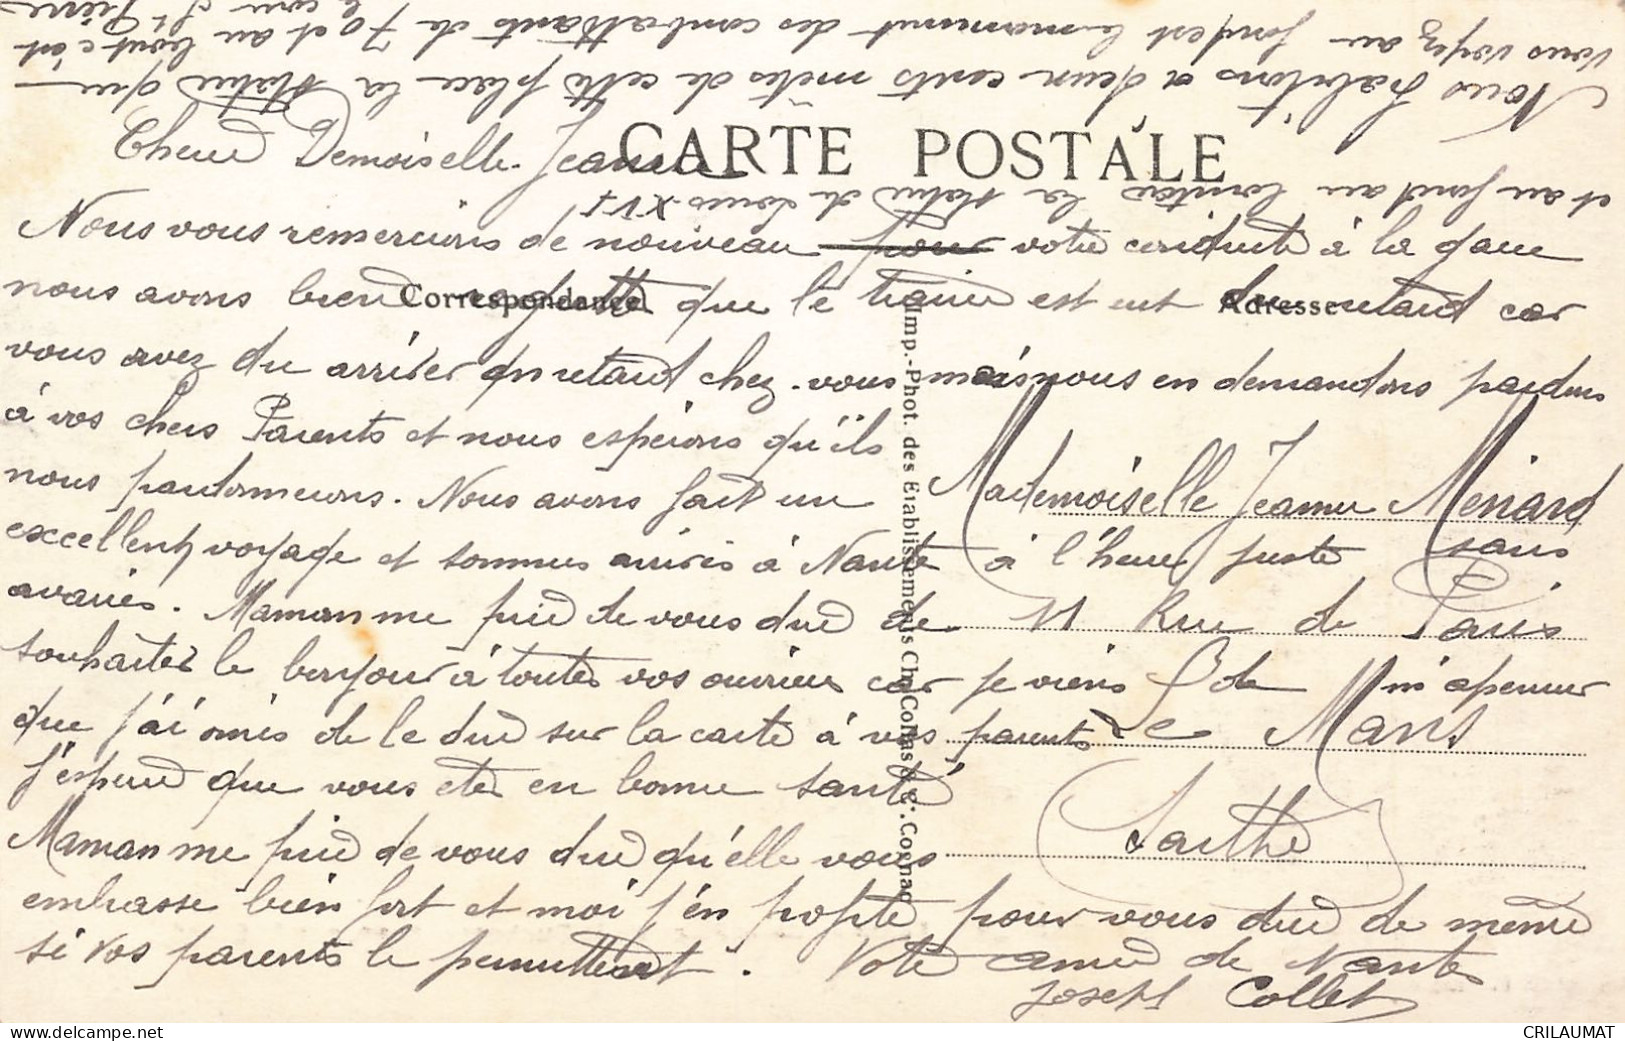 Nous habitons a deux cents mètes de cette place la statue que
vous voyez au fond est le monument des combattants de 70 et au bout c'est
le cour St Pierre
et au fond au lointai la statue de Louis XVI
CARTE POSTALE
Cheue Demoiselle. Jeanne
Nous vous remercions de nouveau pour votre conduite à la gare
nous avons bien regretté que le train est eut du retard car
Correspondance
Adresse
vous avez du arriver en retard chez vous mais nous en demandons pardons
à vos chers Parents et nous espérons qu'ils
nous pardonnerons. Nous avons fait un
excellent voyage et sommes arrivés à Nante à l'heure juste sans
avaries. Maman me prie de vous dire de
souhaiter le bonjour à toutes vos ouvrieres car je viens de m'apercevoir
que j'ai omis de le dire sur la carte à vos parents
J'espere que vous etes en bonne santé
Maman me prie de vous dire qu'elle vous
embrasse bien fort et moi j'en profite pour vous dire de meme
si vos parents le permettent. Votre amie de Nantes
Joseph Collet
Mademoiselle Jeanne Menard
11 Rue de Paris
Le Mans
Sarthe
Imp.-Phot. des Etablissements Ch. Collas & Cie. Cognac
CRILAUMAT